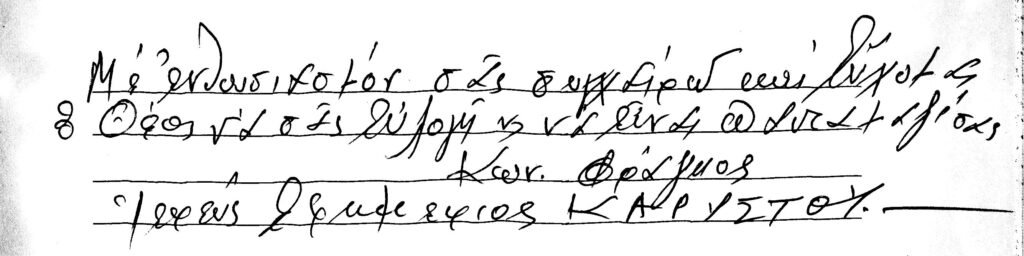 Μέ ἐνθουσιασμόν σᾶς συγχαίρω καί εὔχομαι
ὁ Θεός νά σᾶς εὐλογῆ καί νά εἶναι πάντα μαζί σας
Κων. Φράγκος
Ἱερεύς Ἐφημέριος ΚΑΡΥΣΤΟΥ.